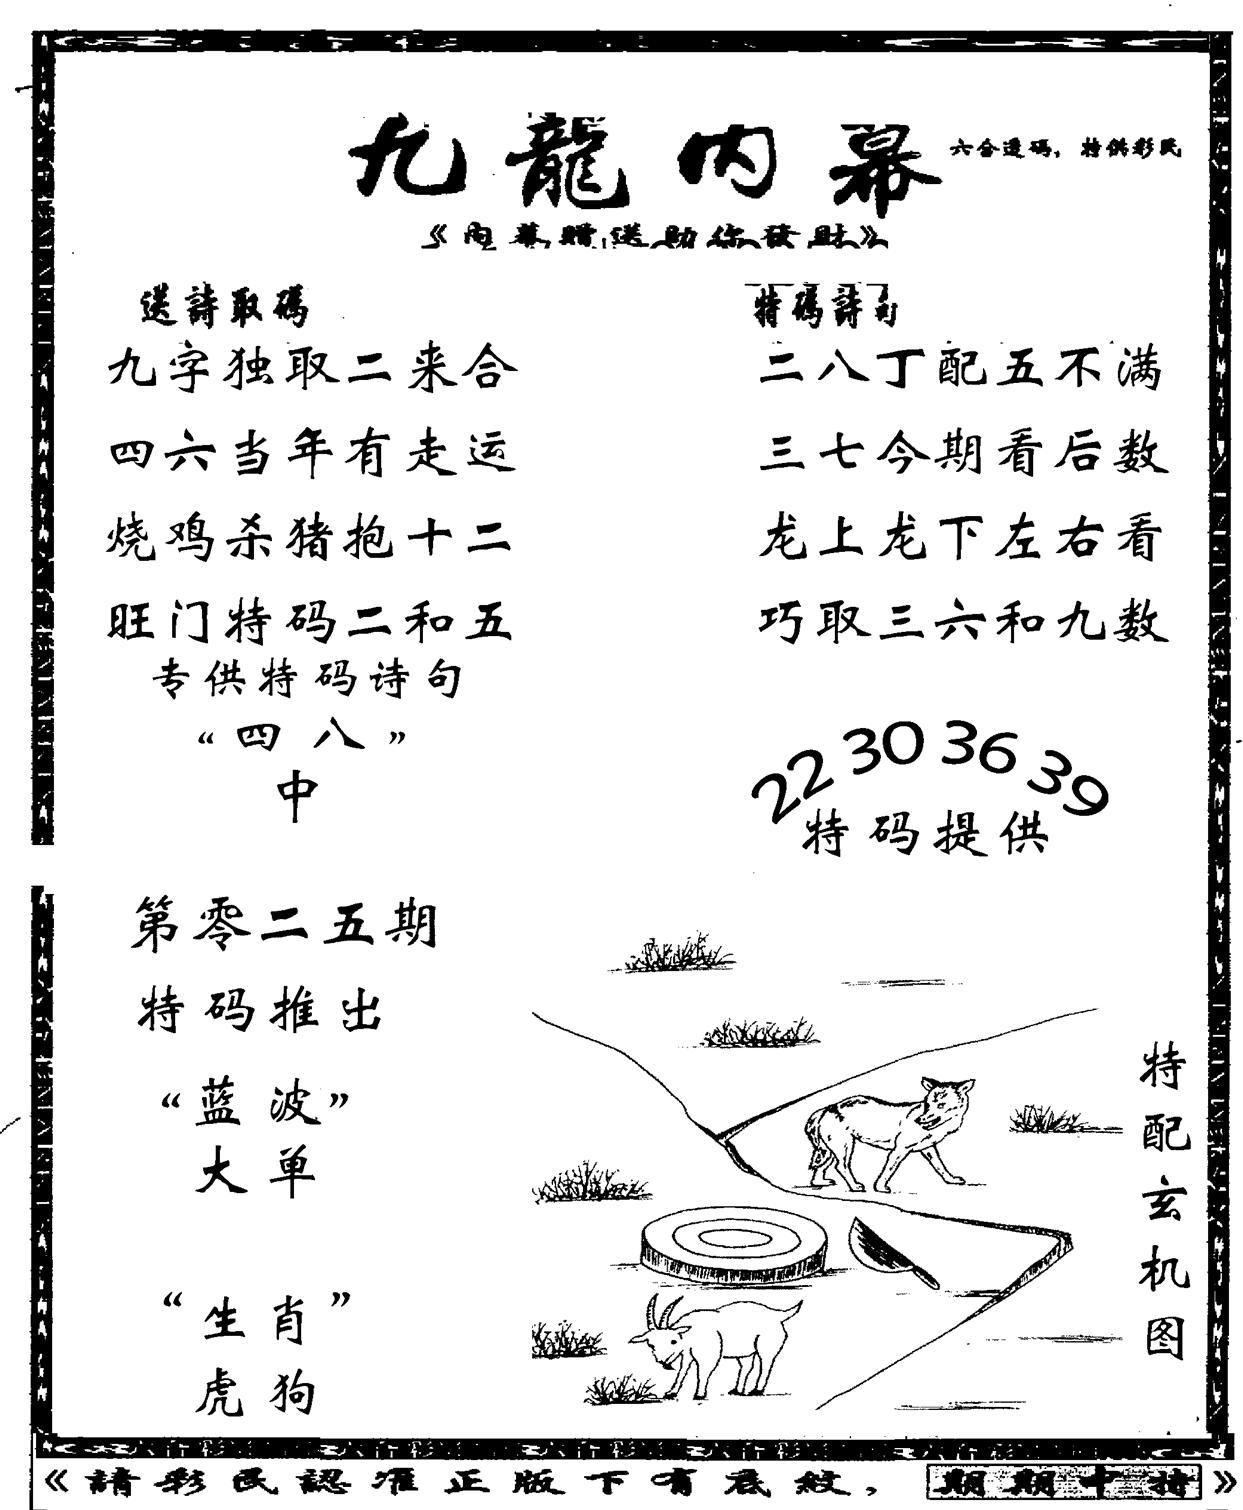 九龍內幕
六合透码，特供彩民
《內幕贈送助你發財》
送詩取碼
九字独取二来合
四六当年有走运
烧鸡杀猪抱十二
旺门特码二和五
专供特码诗句
“四八”
中
特碼詩句
二八丁配五不满
三七今期看后数
龙上龙下左右看
巧取三六和九数
22 30 36 39
特码提供
第零二五期
特码推出
“蓝波”
大单
“生肖”
虎狗
特配玄机图
《請彩民認准正版下有底紋，期期中特》